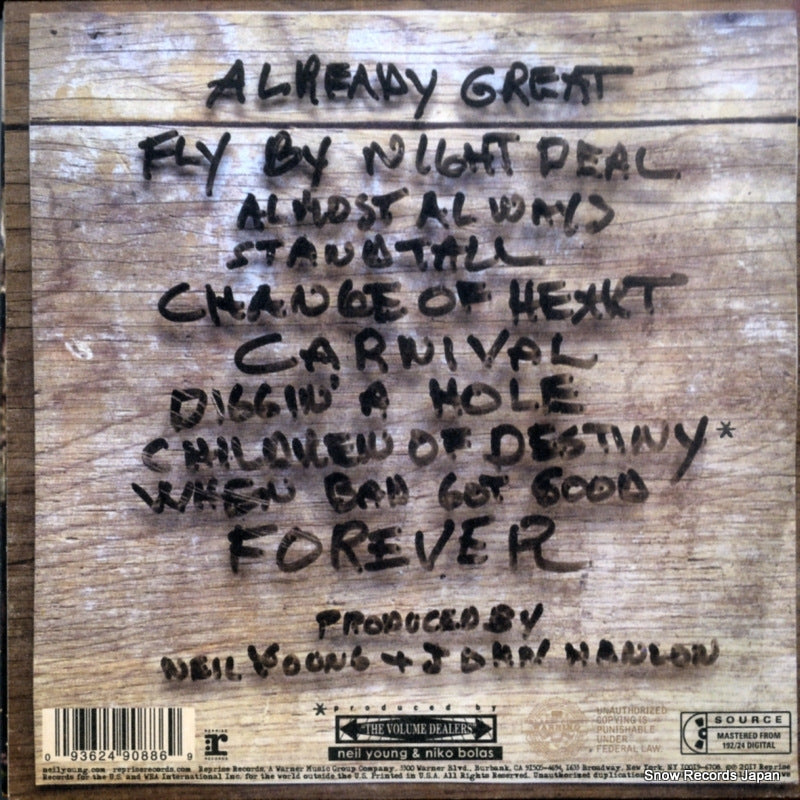 ALREADY GREAT
FLY BY NIGHT DEAL
ALMOST ALWAYS
STAND TALL
CHANGE OF HEART
CARNIVAL
DIGGIN' A HOLE
CHILDREN OF DESTINY*
WHEN BAD GOT GOOD
FOREVER
PRODUCED BY
NEIL YOUNG + JOHN HANLON
*produced by
"THE VOLUME DEALERS"
neil young & niko bolas
0 93624 90886 9
REPRISE
RECORDS
UNAUTHORIZED
COPYING IS
PUNISHABLE
UNDER
FEDERAL LAW.
SOURCE
MASTERED FROM
192/24 DIGITAL
neilyoung.com - repriserecords.com Reprise Records, A Warner Music Group Company, 3300 Warner Blvd., Burbank, CA 91505-4694, 1633 Broadway, New York, NY 10019-6708. ℗© 2017 Reprise
Records for the U.S. and WEA International Inc. for the world outside the U.S. Printed in U.S.A. All Rights Reserved. Unauthorized duplication
Snow Records Japan